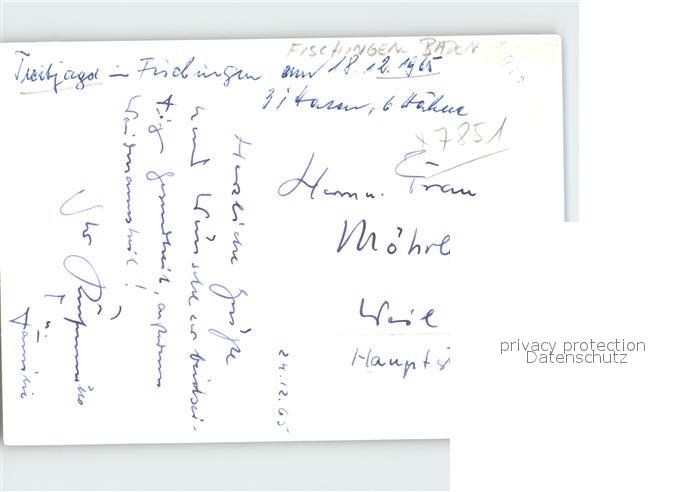 FISCHINGEN BADEN
Treibjagd in Fischingen am 18.12.1965
31 Hasen, 6 Hähne
x7851
Herrn u. Frau
Möhrl
Weil
Haupts
Herzliche Grüße
und Wünsche
Gesundheit,
Waidmannsheil!
Ihr
u. Familie
24.12.65
privacy protection
Datenschutz